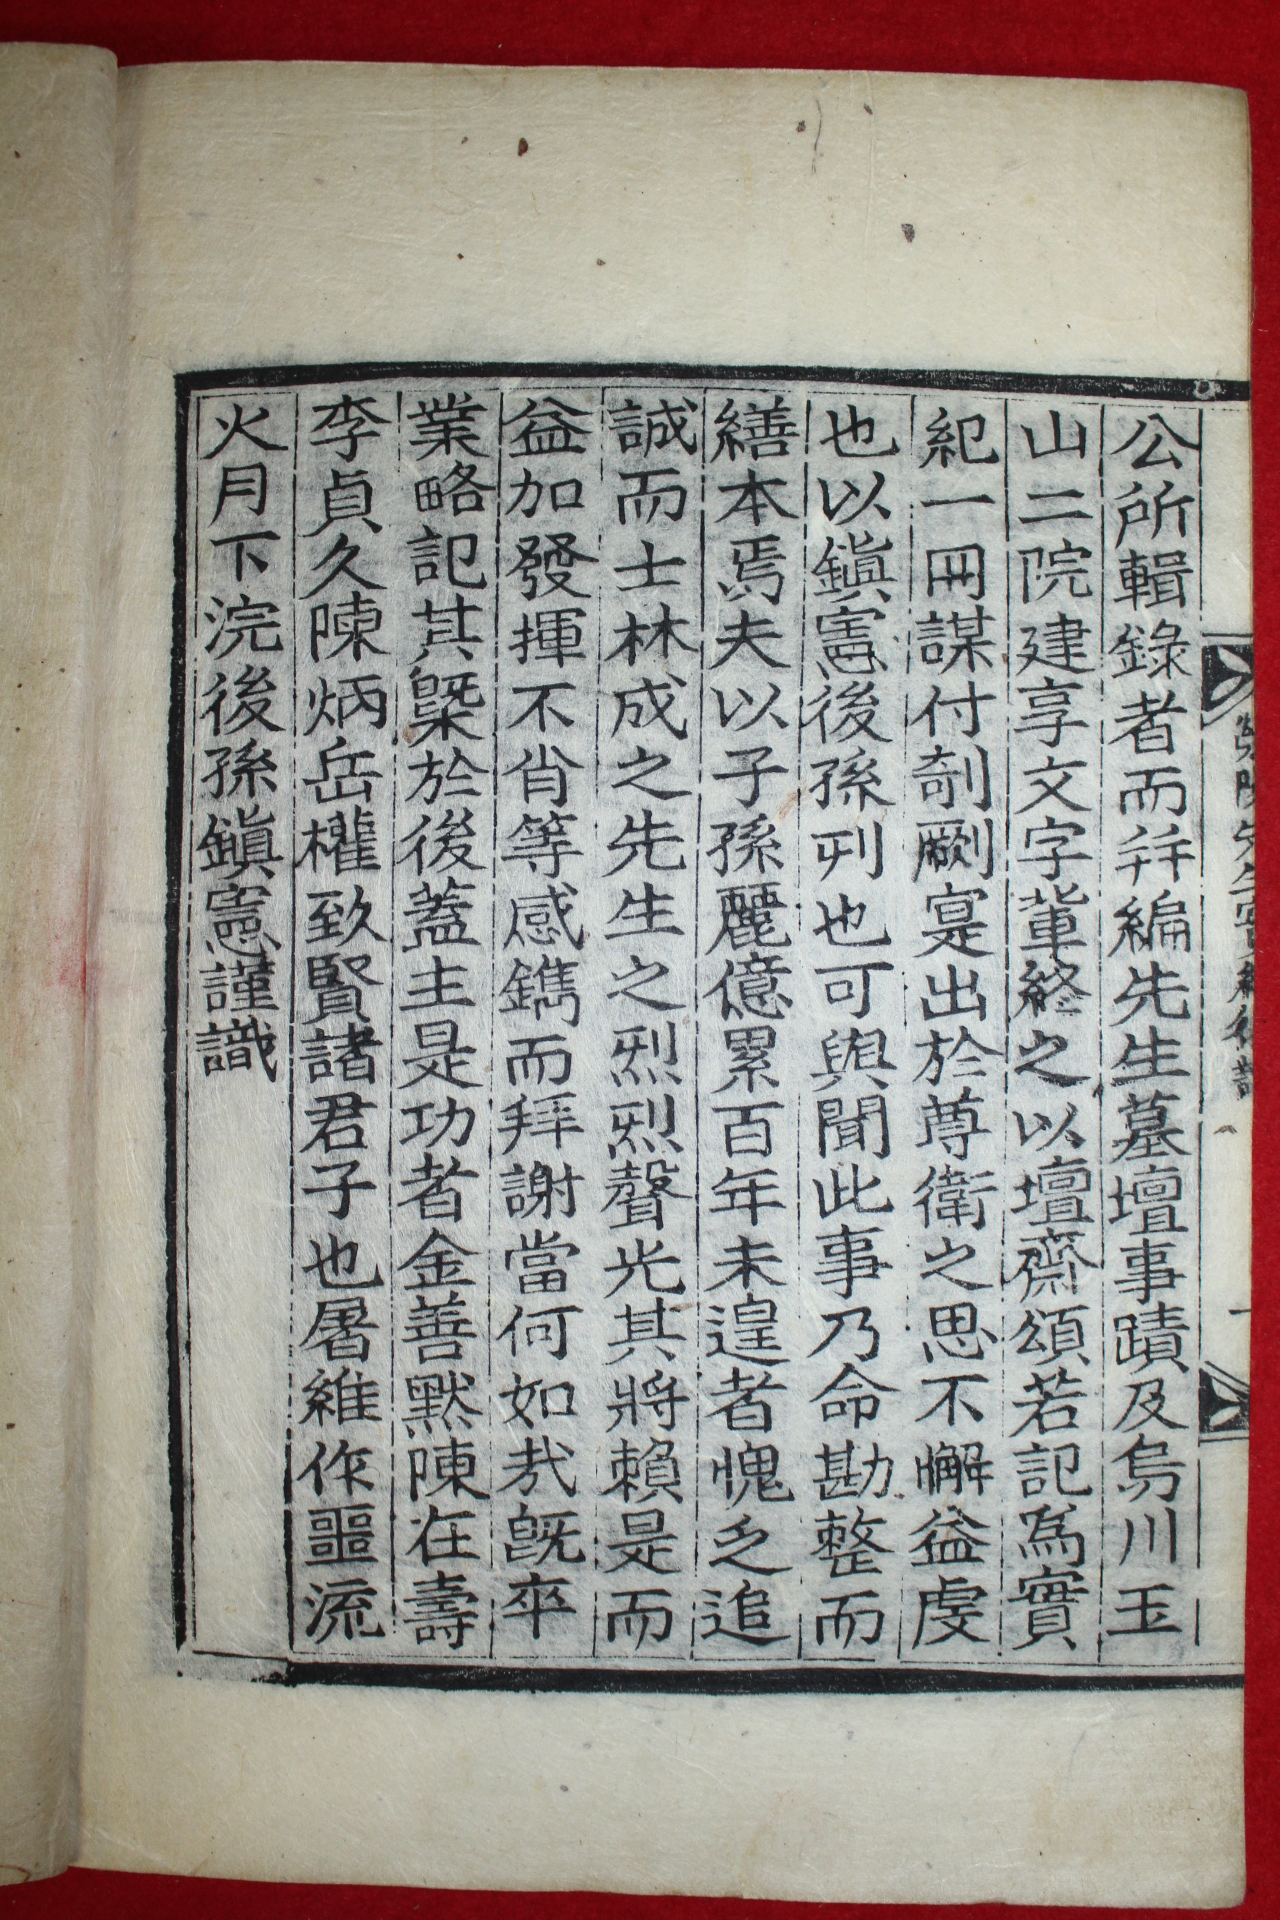 公所輯錄者而幷編先生墓壇事蹟及烏川玉
山二院建享文字輩終之以壇齋頌若記爲實
紀一冊謀付剞劂寔出於尊衛之思不懈益虔
也以鎭憲後孫列也可與聞此事乃命勘整而
繕本焉夫以子孫麗億累百年未遑者愧乏追
誠而士林成之先生之烈烈聲光其將賴是而
益加發揮不肖等感鐫而拜謝當何如哉旣卒
業略記其槩於後蓋主是功者金善默陳在壽
李貞久陳炳岳權致賢諸君子也屠維作噩流
火月下浣後孫鎭憲謹識
先生實紀後